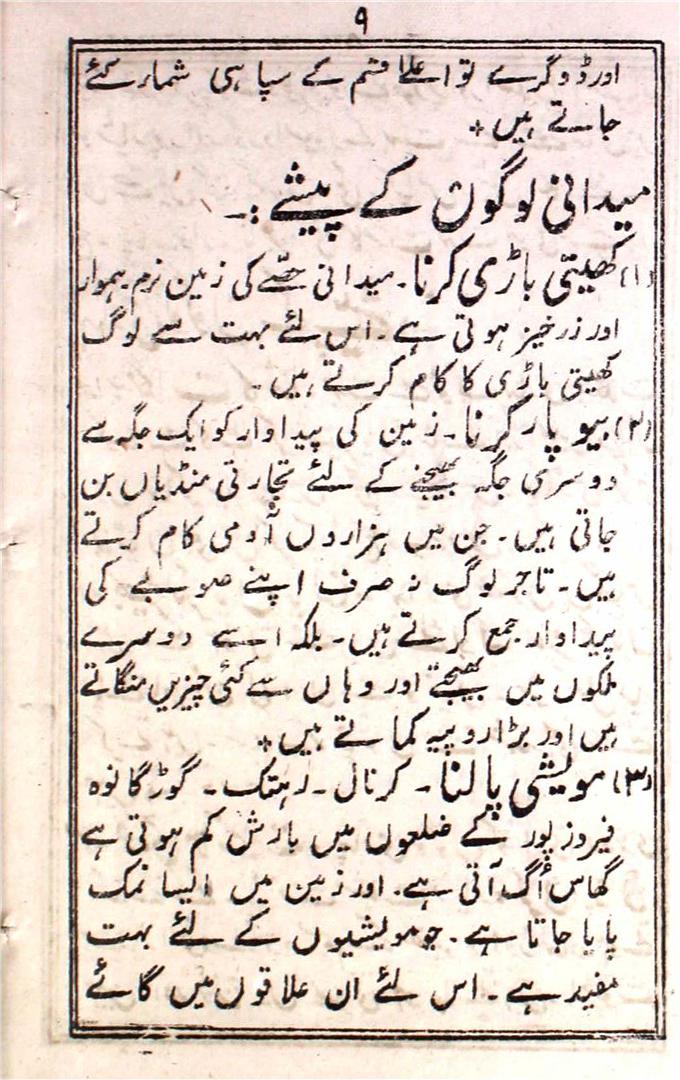 ۹
اور ڈوگرے تو اعلےٰ قسم کے سپاہی شمار کئے
جاتے ہیں +
میدانی لوگوں کے پیشے :۔
(۱) کھیتی باڑی کرنا۔ میدانی حصّے کی زمین نرم۔ ہموار
اور زرخیز ہوتی ہے۔ اس لئے بہت سے لوگ
کھیتی باڑی کا کام کرتے ہیں۔
(۲) بیوپار کرنا۔ زمین کی پیداوار کو ایک جگہ سے
دوسری جگہ بھیجنے کے لئے تجارتی منڈیاں بن
جاتی ہیں۔ جن میں ہزاروں آدمی کام کرتے
ہیں۔ تاجر لوگ نہ صرف اپنے صوبے کی
پیداوار جمع کرتے ہیں۔ بلکہ اسے دوسرے
ملکوں میں بھیجتے اور وہاں سے کئی چیزیں منگاتے
ہیں اور بڑا روپیہ کماتے ہیں +
(۳) مویشی پالنا۔ کرنال۔ رہتک۔ گوڑگانوہ
فیروزپور کے ضلعوں میں بارش کم ہوتی ہے
گھاس اُگ آتی ہے۔ اور زمین میں ایسا نمک
پایا جاتا ہے۔ جو مویشیوں کے لئے بہت
مفید ہے۔ اس لئے ان علاقوں میں گائے